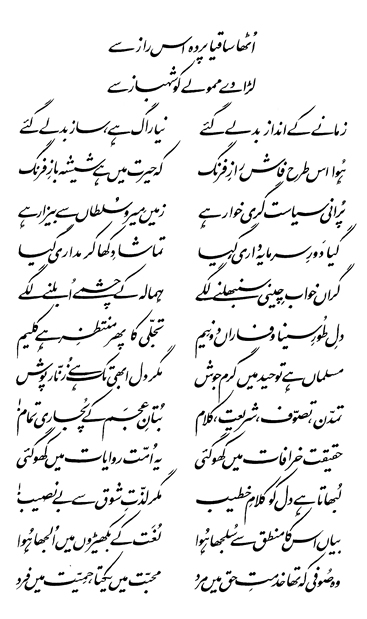 اُٹھا ساقیا پردہ اس راز سے
لڑا دے ممولے کو شہباز سے
زمانے کے انداز بدلے گئے نیا راگ ہے، ساز بدلے گئے
ہُوا اس طرح فاش رازِ فرنگ کہ حیرت میں ہے شیشہ بازِ فرنگ
پُرانی سیاست گری خوار ہے زمیں میر و سُلطاں سے بیزار ہے
گیا دَورِ سرمایہ داری گیا تماشا دکھا کر مداری گیا
گراں خواب چینی سنبھلنے لگے ہمالہ کے چشمے اُبلنے لگے
دلِ طُورِ سینا و فاراں دو نیم تجلّی کا پھر منتظر ہے کلیم
مسلماں ہے توحید میں گرم جوش مگر دل ابھی تک ہے زُنّار پوش
تمدّن، تصوّف، شریعت، کلام بُتانِ عجَم کے پُجاری تمام!
حقیقت خرافات میں کھو گئی یہ اُمّت روایات میں کھو گئی
لُبھاتا ہے دل کو کلامِ خطیب مگر لذّتِ شوق سے بے نصیب!
بیاں اس کا منطق سے سُلجھا ہُوا لُغَت کے بکھیڑوں میں اُلجھا ہُوا
وہ صُوفی کہ تھا خدمتِ حق میں مرد محبّت میں یکتا، حمِیّت میں فرد